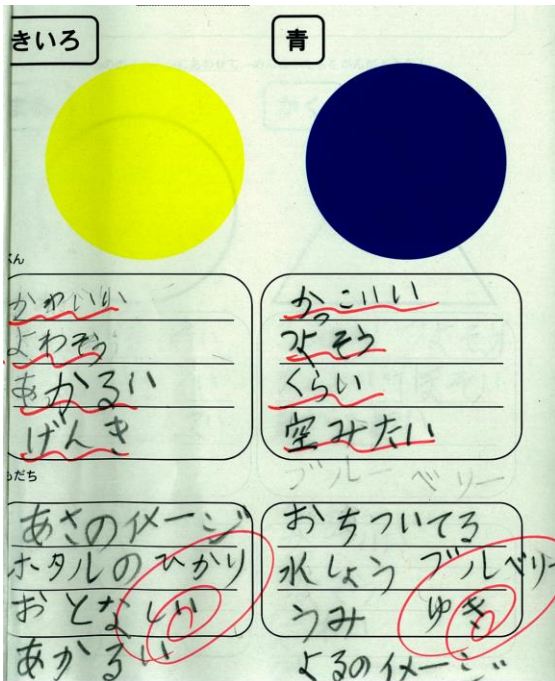 きいろ
青
かわいい
よわそう
あかるい
げんき
かっこいい
つよそう
くらい
空みたい
ブルーベリー
もだち
あさのイメージ
ホタルのひかり
おとなしい
あかるい
おちついてる
水しょう ブルベリー
うみ ゆき
よるのイメージ